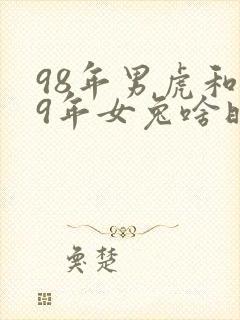 98年男虎和
9年女兔啥时
爱楚